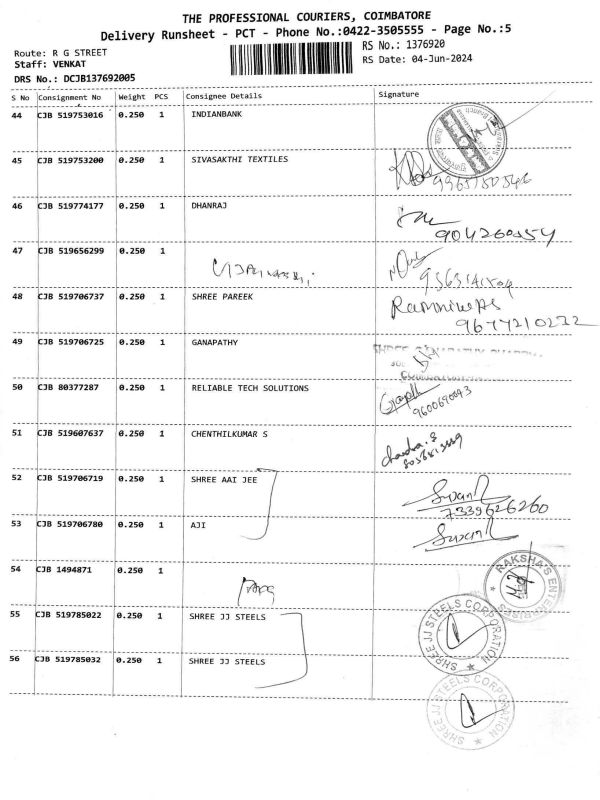 THE PROFESSIONAL COURIERS, COIMBATORE
Delivery Runsheet - PCT - Phone No.:0422-3505555 - Page No.:5
Route: R G STREET
RS No.: 1376920
Staff: VENKAT
RS Date: 04-Jun-2024
DRS No.: DCJB137692005
S No Consignment No Weight PCS Consignee Details Signature
44 CJB 519753016 0.250 1 INDIANBANK
45 CJB 519753200 0.250 1 SIVASAKTHI TEXTILES
46 CJB 519774177 0.250 1 DHANRAJ
47 CJB 519656299 0.250 1
48 CJB 519706737 0.250 1 SHREE PAREEK
9677210232
49 CJB 519706725 0.250 1 GANAPATHY
50 CJB 80377287 0.250 1 RELIABLE TECH SOLUTIONS
9600690093
51 CJB 519607637 0.250 1 CHENTHILKUMAR S
Chandra.S
52 CJB 519706719 0.250 1 SHREE AAI JEE
7339626260
53 CJB 519706780 0.250 1 AJI
54 CJB 1494871 0.250 1
RAKSHA'S ENTERPRISES
55 CJB 519785022 0.250 1 SHREE JJ STEELS
SHREE JJ STEELS CORPORATION
56 CJB 519785032 0.250 1 SHREE JJ STEELS
SHREE JJ STEELS CORPORATION